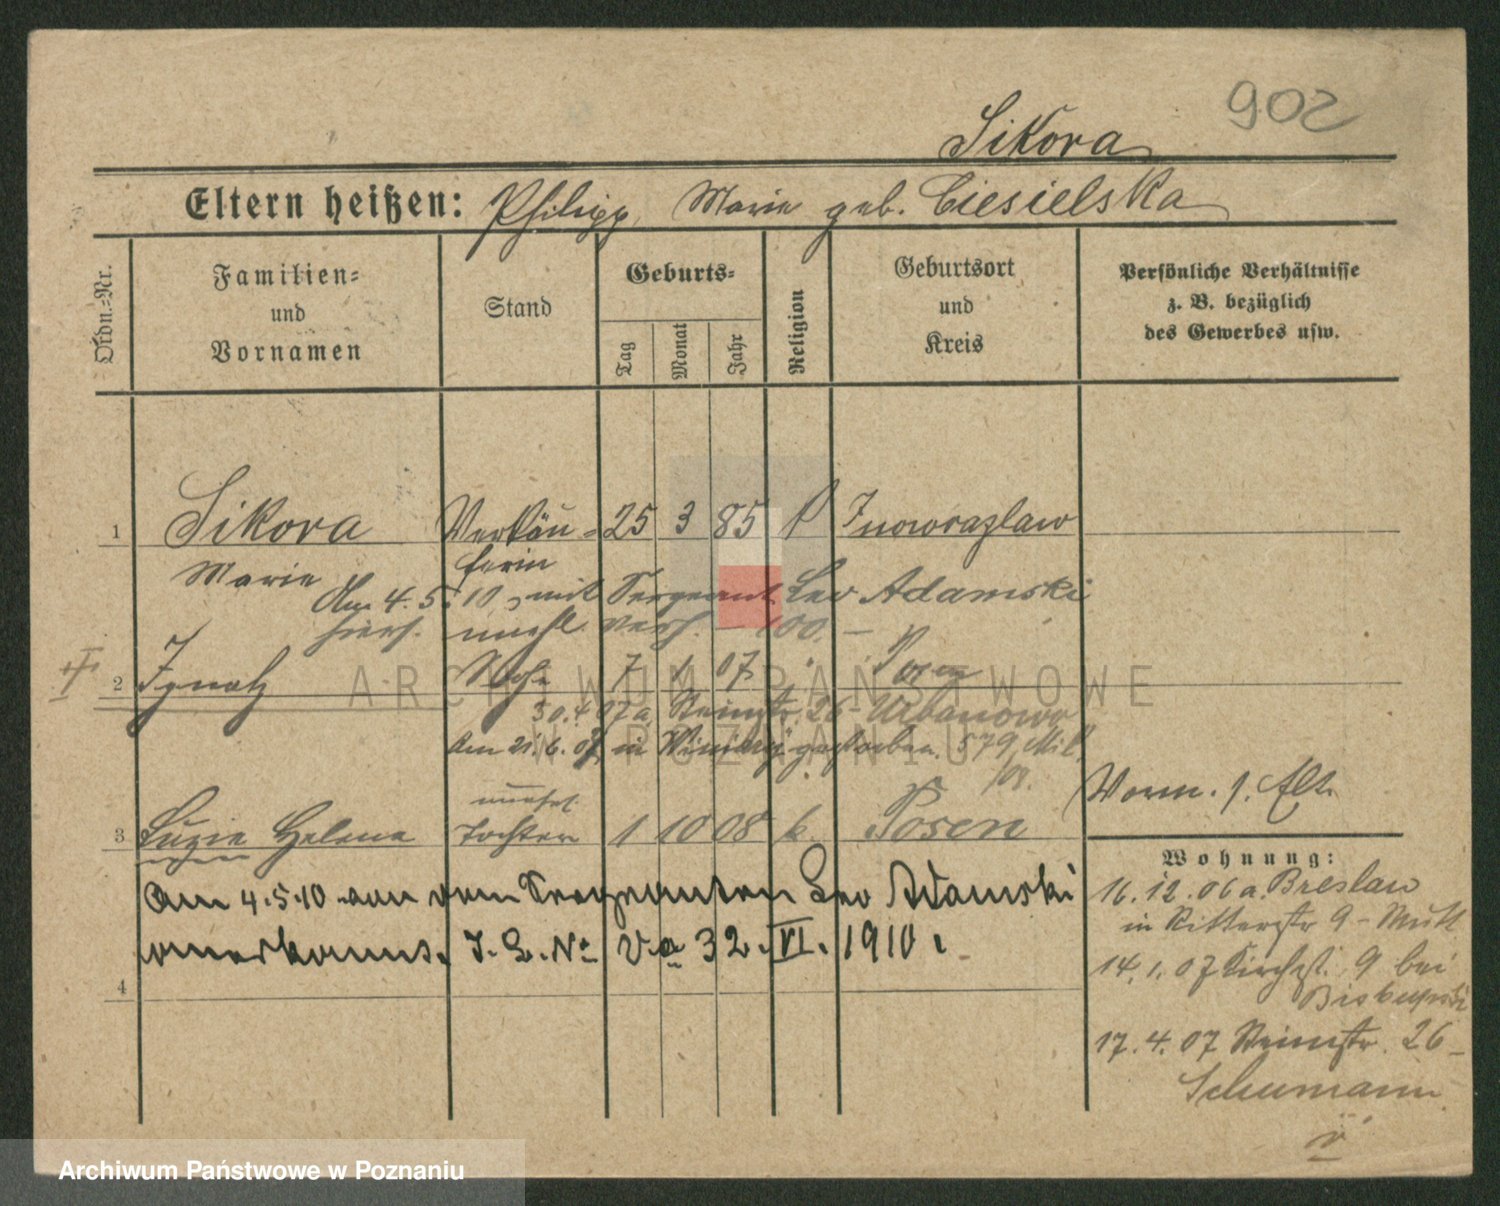 902
Sikora
Eltern heißen: Philipp, Marie geb. Ciesielska
Ordn.=Nr.
Familien=
und
Vornamen
Stand
Geburts=
Tag
Monat
Jahr
Religion
Geburtsort
und
Kreis
Persönliche Verhältnisse
z. B. bezüglich
des Gewerbes usw.
1 Sikora Verkäu= 25 3 85 Inowrazlaw
Marie ferin
Am 4.5.10 mit Sergeant Leo Adamski
hiers. verh.
2 Ignatz Sohn 7 1 07 " Posen
30.4.07 a. Steinstr. 26 Urbanowo
Am 21.6.07 in gestorben. 579
Vorm. s. Akt.
unehel.
3 Luzie Helena Tochter 1 10 08 k. Posen
Am 4.5.10 von dem Sergeanten Leo Adamski
anerkannt. J. L. No Va 32. VI. 1910.
4
Wohnung:
16.12.06 a. Breslau
in Ritterstr 9 -
14.1.07 Kirchst. 9 bei
Biskupski
17.4.07 Steinstr. 26
Schumann
ARCHIWUM PAŃSTWOWE
W POZNANIU
Archiwum Państwowe w Poznaniu